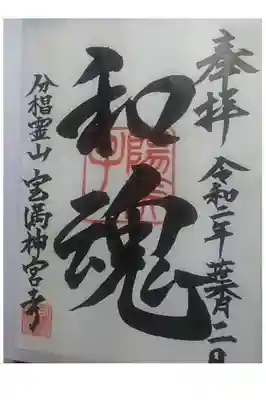 奉拝 令和二年葉月二日
和魂
分椙霊山 宝満神宮寺